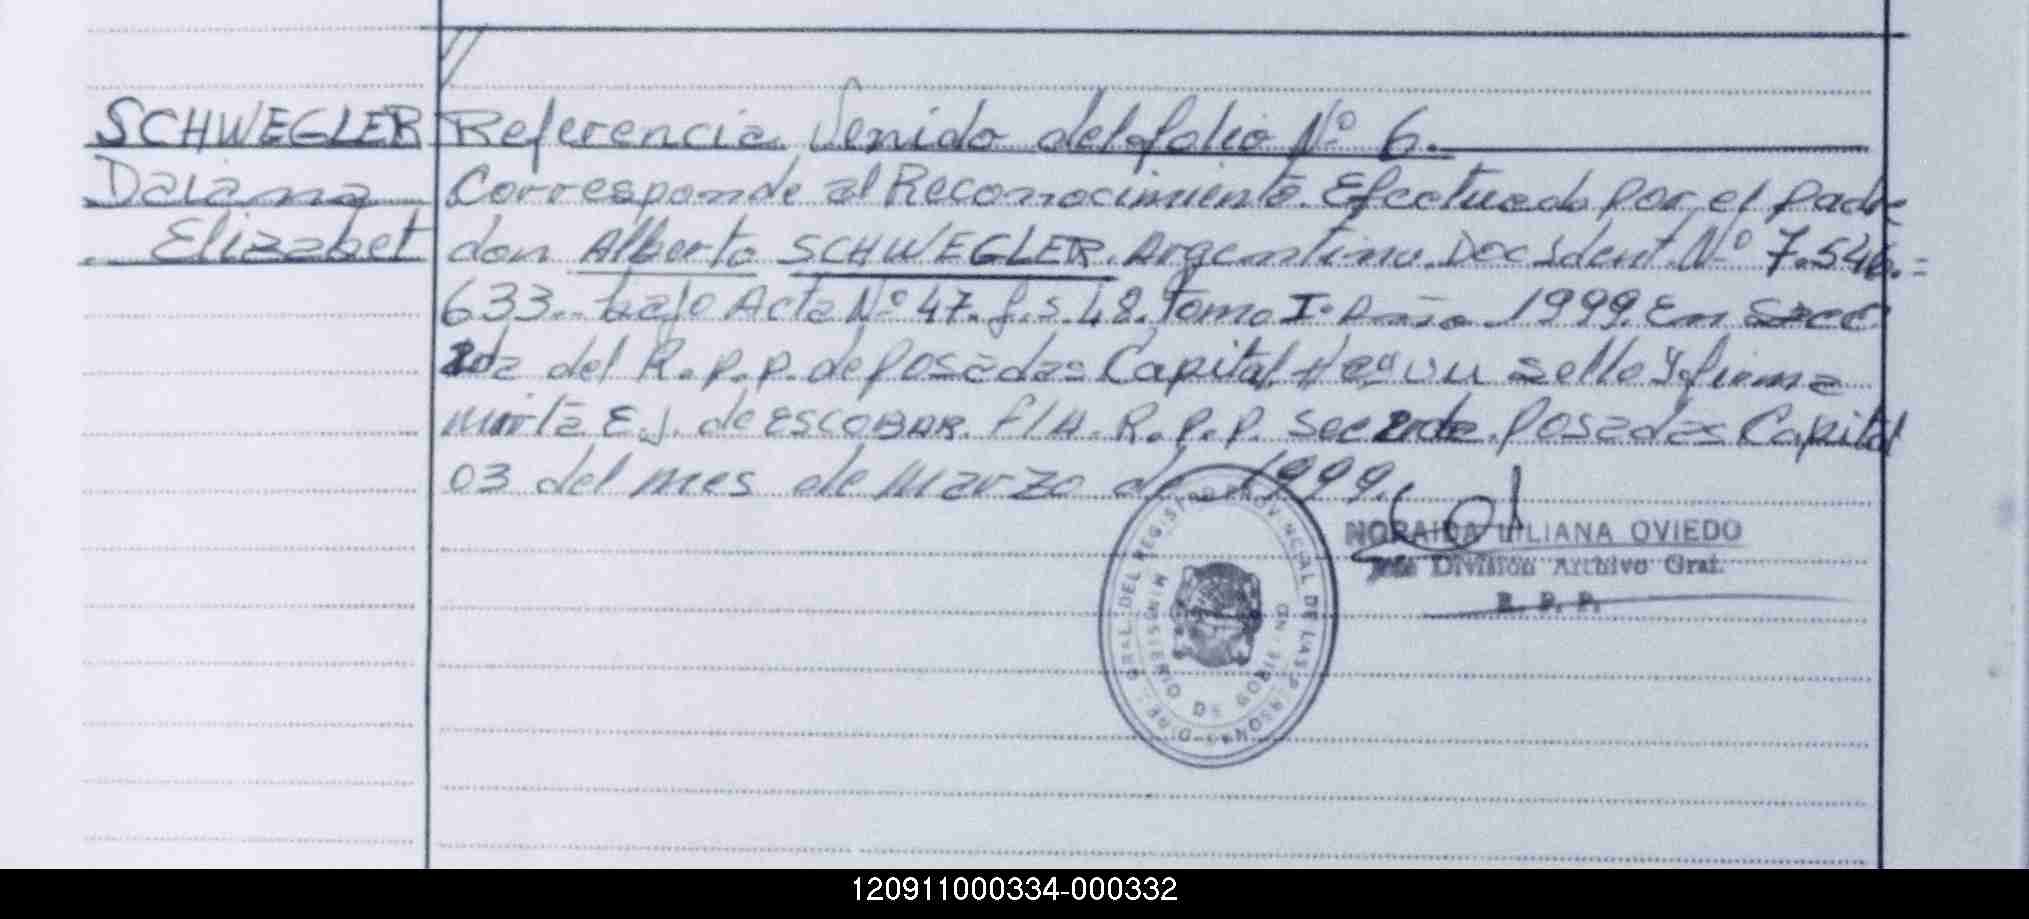 SCHWEGLER
Daiana
Elizabet
Referencia Venido del folio Nº 6.
Corresponde al Reconocimiento Efectuado por el padre
don Alberto SCHWEGLER. Argentino. Doc Ident. Nº 7.546.=
633.. bajo Acta Nº 47. f.s. 48. Tomo I. Año 1999. En Secc
2da del R.p.p. de posadas Capital. Hay un sello y firma
mirta E.J. de ESCOBAR. f/A. R.p.p. Sec 2da. Posadas Capital
03 del mes de Marzo de 1999.
NORAIDA LILIANA OVIEDO
Jefe División Archivo Gral.
R. P. P.
DIREC. GRAL. DEL REGISTRO PROVINCIAL DE LAS PERSONAS
MINISTERIO DE GOBIERNO
120911000334-000332